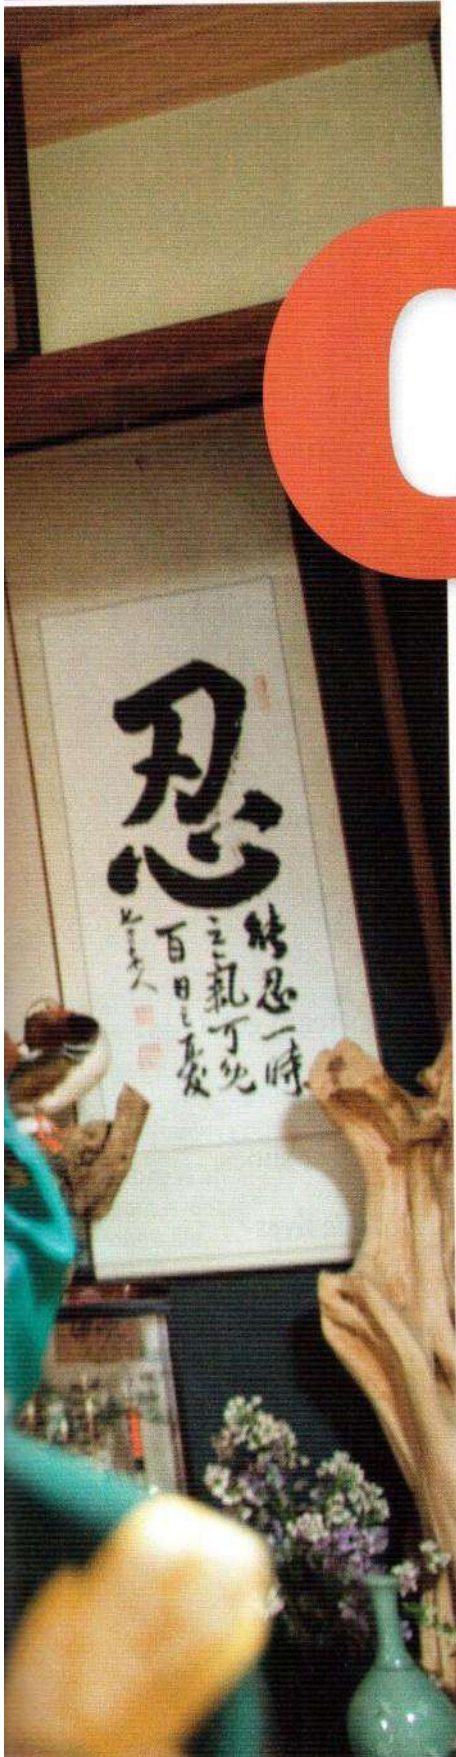 忍
能忍一時
之氣可免
百日之憂